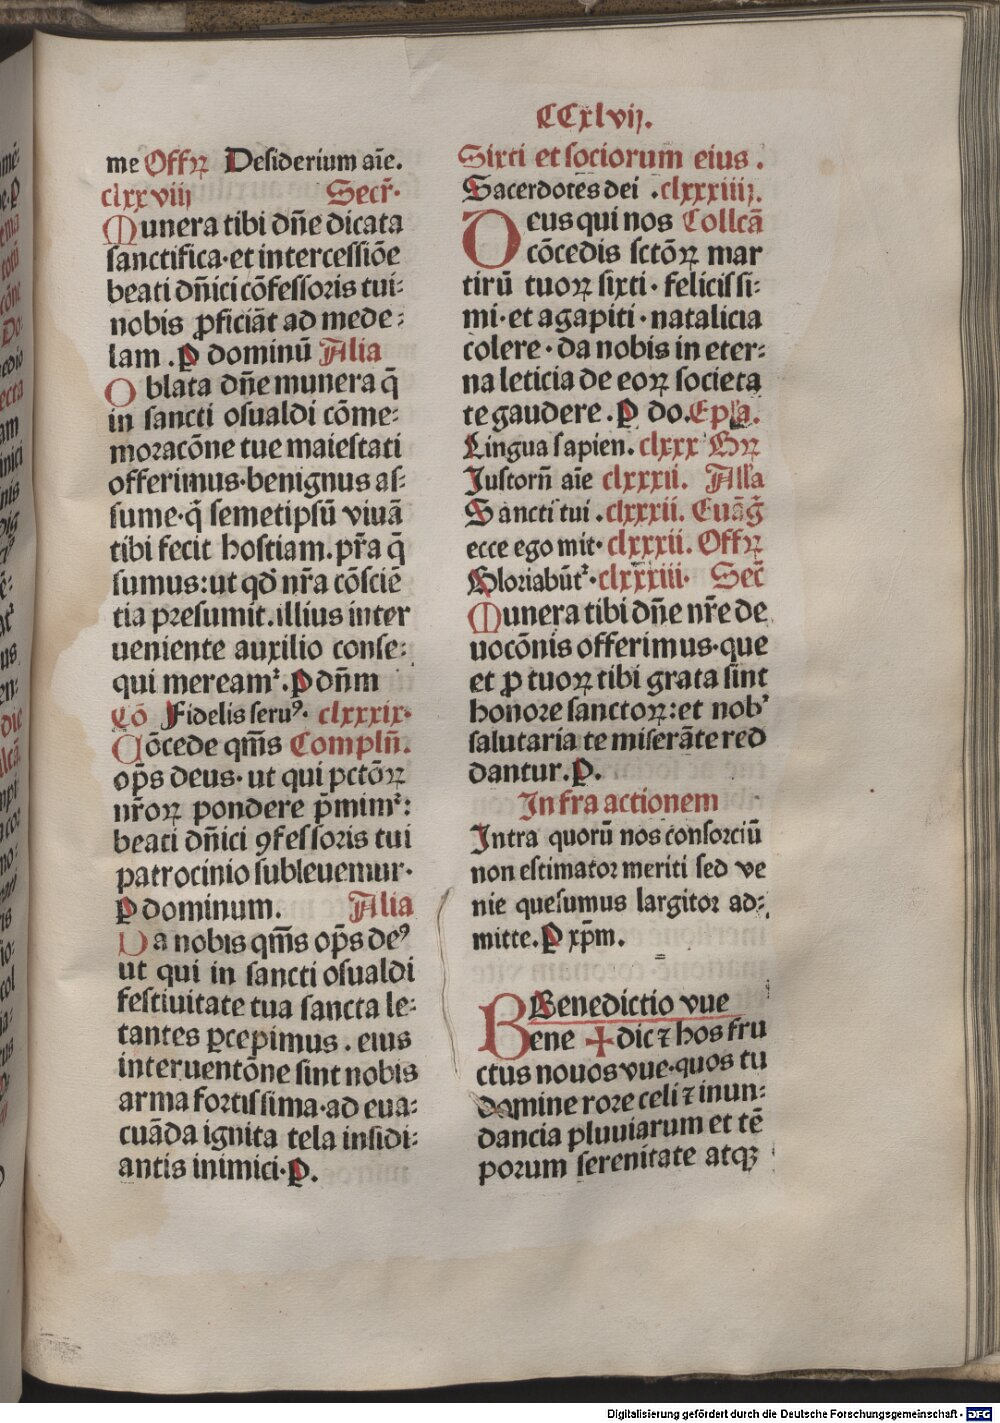 CCxlvij.
me Offꝝ Desiderium aīe.
clxxviij Secr̄.
Munera tibi dn̄e dicata
sanctifica·et intercessiōe
beati dn̄ici cōfessoris tui-
nobis ꝓficiāt ad mede-
lam. ꝑ dominū Alia
Oblata dn̄e munera q̄
in sancti osualdi cōme-
moracōne tue maiestati
offerimus·benignus as-
sume·q̄ semetipsū viuā
tibi fecit hostiam. pr̄a q̄
sumus: ut qd̄ nr̄a cōsciē
tia presumit. illius inter
ueniente auxilio conse-
qui meream᷑. ꝑ dn̄m
Cō Fidelis seruꝰ. clxxxix.
Cōcede qm̄s Compln̄.
op̄s deus· ut qui pctōꝝ
nr̄oꝝ pondere p̄mim᷑:
beati dn̄ici ꝯfessoris tui
patrocinio subleuemur.
ꝑ dominum. Alia
Da nobis qm̄s op̄s deꝰ
ut qui in sancti osualdi
festiuitate tua sancta le-
tantes ꝑcepimus. eius
interuentōne sint nobis
arma fortissima·ad eua-
cuāda ignita tela insidi-
antis inimici·ꝑ.
Sixti et sociorum eius.
Sacerdotes dei .clxxxiiij.
Deus qui nos Collcā
cōcedis sctōꝝ mar
tirū tuoꝝ sixti· felicissi-
mi·et agapiti·natalicia
colere· da nobis in eter-
na leticia de eoꝝ societa
te gaudere. ꝑ do. Epl̄a.
Lingua sapien. clxxx Grꝝ
Justorn̄ aīe clxxxii. Alla
Sancti tui .clxxxii. Euāḡ
ecce ego mit· clxxxii. Offꝝ
Gloriabūt᷑·clxxxiii. Sec̄
Munera tibi dn̄e nr̄e de
uocōnis offerimus·que
et ꝓ tuoꝝ tibi grata sint
honore sanctoꝝ: et nobꝰ
salutaria te miserāte red
dantur. ꝑ.
Infra actionem
Intra quorū nos consorciū
non estimator meriti sed ve
nie quesumus largitor ad-
mitte. ꝑ xp̄m.
Benedictio vue
Bene ✠ dic ⁊ hos fru
ctus nouos vue·quos tu
domine rore celi ⁊ inun-
dancia pluuiarum et tē
porum serenitate atqꝫ
Digitalisierung gefördert durch die Deutsche Forschungsgemeinschaft - DFG